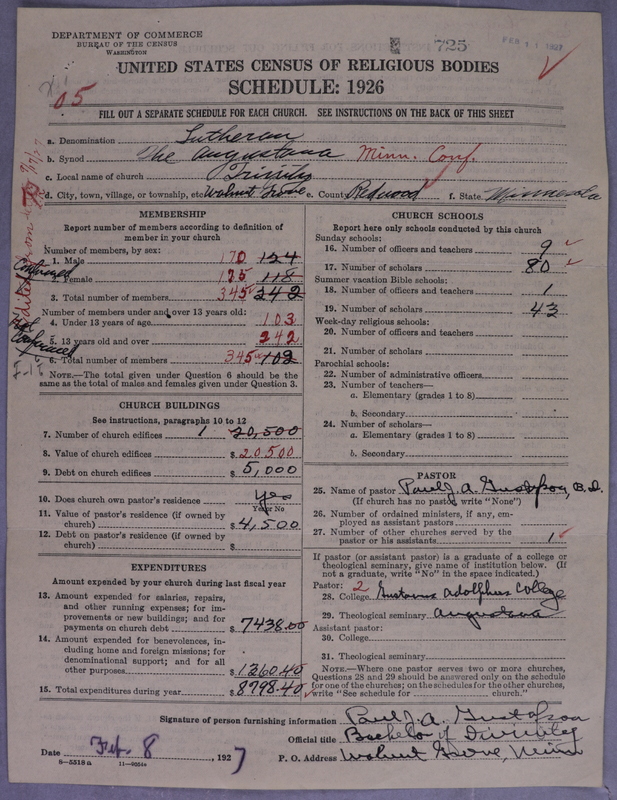 DEPARTMENT OF COMMERCE
BUREAU OF THE CENSUS
WASHINGTON
725
FEB 11 1927
UNITED STATES CENSUS OF RELIGIOUS BODIES
SCHEDULE: 1926
05
FILL OUT A SEPARATE SCHEDULE FOR EACH CHURCH. SEE INSTRUCTIONS ON THE BACK OF THIS SHEET
a. Denomination Lutheran
b. Synod The Augustana Minn. Conf.
c. Local name of church Trinity
d. City, town, village, or township, etc. Walnut Grove e. County Redwood f. State Minnesota
MEMBERSHIP
Report number of members according to definition of member in your church
Number of members, by sex:
Confirmed
1. Male 170 124
2. Female 175 118
3. Total number of members 345 242
Number members under and over 13 years old:
Not Confirmed
4. Under 13 years of age 103
5. 13 years old and over 242
6. Total number of members 345 103
NOTE.—The total given under Question 6 should be the same as the total of males and females given under Question 3.
CHURCH BUILDINGS
See instructions, paragraphs 10 to 12
7. Number of church edifices 1 20,500
8. Value of church edifices $ 20,500
9. Debt on church edifices $ 5,000
10. Does church own pastor's residence Yes
Yes or No
11. Value of pastor's residence (if owned by church) $ 4,500
12. Debt on pastor's residence (if owned by church) $
EXPENDITURES
Amount expended by your church during last fiscal year
13. Amount expended for salaries, repairs, and other running expenses; for improvements or new buildings; and for payments on church debt $ 7438.00
14. Amount expended for benevolences, including home and foreign missions; for denominational support; and for all other purposes $ 1360.40
15. Total expenditures during year $ 8798.40
CHURCH SCHOOLS
Report here only schools conducted by this church
Sunday schools:
16. Number of officers and teachers 9
17. Number of scholars 80
Summer vacation Bible schools:
18. Number of officers and teachers 1
19. Number of scholars 43
Week-day religious schools:
20. Number of officers and teachers
21. Number of scholars
Parochial schools:
22. Number of administrative officers
23. Number of teachers—
a. Elementary (grades 1 to 8)
b. Secondary
24. Number of scholars—
a. Elementary (grades 1 to 8)
b. Secondary
PASTOR
25. Name of pastor Paul J. A. Gustafson, B.D.
(If church has no pastor, write "None")
26. Number of ordained ministers, if any, employed as assistant pastors
27. Number of other churches served by the pastor or his assistants 1
If pastor (or assistant pastor) is a graduate of a college or theological seminary, give name of institution below. (If not a graduate, write "No" in the space indicated.)
Pastor: 2
28. College Gustavus Adolphus College
29. Theological seminary Augustana
Assistant pastor:
30. College
31. Theological seminary
NOTE.—Where one pastor serves two or more churches, Questions 28 and 29 should be answered only on the schedule for one of the churches; on the schedules for the other churches, write "See schedule for ________ church."
Signature of person furnishing information Paul J. A. Gustafson
Official title Bachelor of Divinity
Date Feb. 8, 1927
P. O. Address Walnut Grove, Minn
8—5518 a 11—9034a